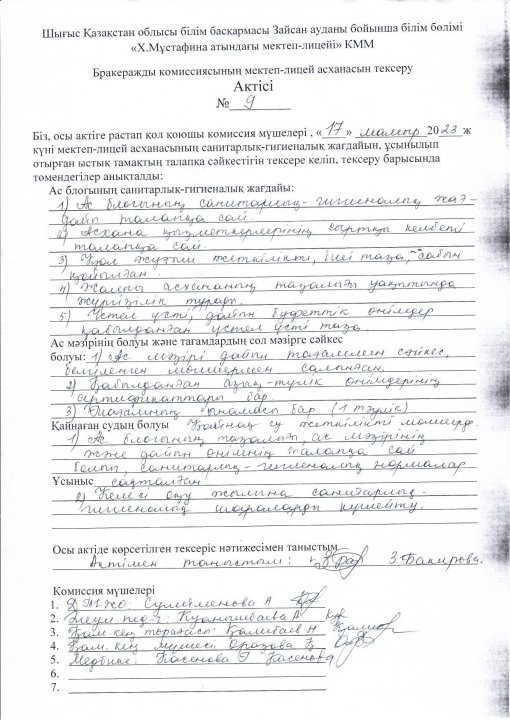 Шығыс Қазақстан облысы білім басқармасы Зайсан ауданы бойынша білім бөлімі
«Х.Мұстафина атындағы мектеп-лицейі» КММ
Бракеражды комиссиясының мектеп-лицей асханасын тексеру
Актісі
№ 9
Біз, осы актіге растап қол қоюшы комиссия мүшелері , « 17 » мамыр 2023 ж
күні мектеп-лицей асханасының санитарлық-гигиеналық жағдайын, ұсынылып
отырған ыстық тамақтың талапқа сәйкестігін тексере келіп, тексеру барысында
төмендегілер анықталды:
Ас блогының санитарлық-гигиеналық жағдайы:
1) Ас блогының санитарлық-гигиеналық жағ-
дайы талапқа сай.
2) Асхана қызметкерлерінің сыртқы келбеті
талапқа сай.
3) Қол жуғыш жеткілікті, іші таза, сабын
қойылған.
4) Жалпы асхананың тазалығы уақытында
жүргізіліп тұрады.
5) Үстел үсті, дайын буфеттік өнімдер
қабылданған үстел үсті таза.
Ас мәзірінің болуы және тағамдардың сол мәзірге сәйкес
болуы: 1) Ас мәзірі дайын тағаммен сәйкес,
белгіленген мөлшермен салынған.
2) Қабылданған азық-түлік өнімдерінің
сертификаттары бар.
3) сынамасы бар (1 тәулік)
Қайнаған судың болуы Қайнақ су жеткілікті мөлшерде.
1) Ас блогының тазалығы, ас мәзірінің
және дайын өнімнің талапқа сай
болып, санитарлық-гигиеналық нормалар
Ұсыныс сақталған
2) Келесі оқу жылына санитарлық-
гигиеналық шараларды күшейту.
Осы актіде көрсетілген тексеріс нәтижесімен таныстым
Актімен таныстым: З.Бакирова.
Комиссия мүшелері
1. ДТІЖО: Сулейменова А
2. Әлеум.пед-г: Қуанышбаева А
3. Қам.кең төрағасы: Қалибаев Н
4. Қам. кең мүшесі Оразова Б
5. Медбике: Касенова Г
6.
7.